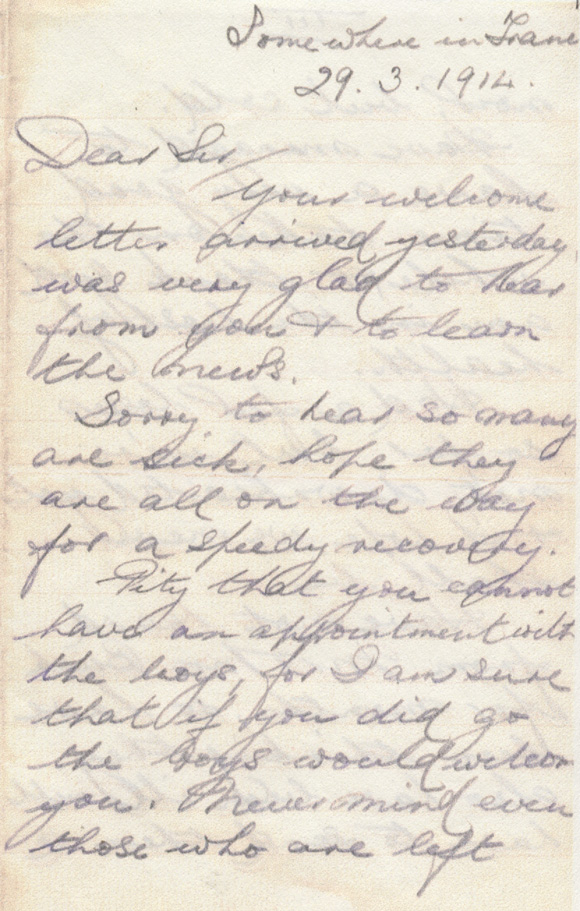 Somewhere in Franc
29.3.1914.
Dear Sir
Your welcome
letter arrived yesterday,
was very glad to hear
from you & to learn
the news.
Sorry to hear so many
are sick, hope they
are all on the way
for a speedy recovery.
Pity that you cannot
have an appointment with
the boys, for I am sure
that if you did go
the boys would welcom
you. Never mind even
those who are left